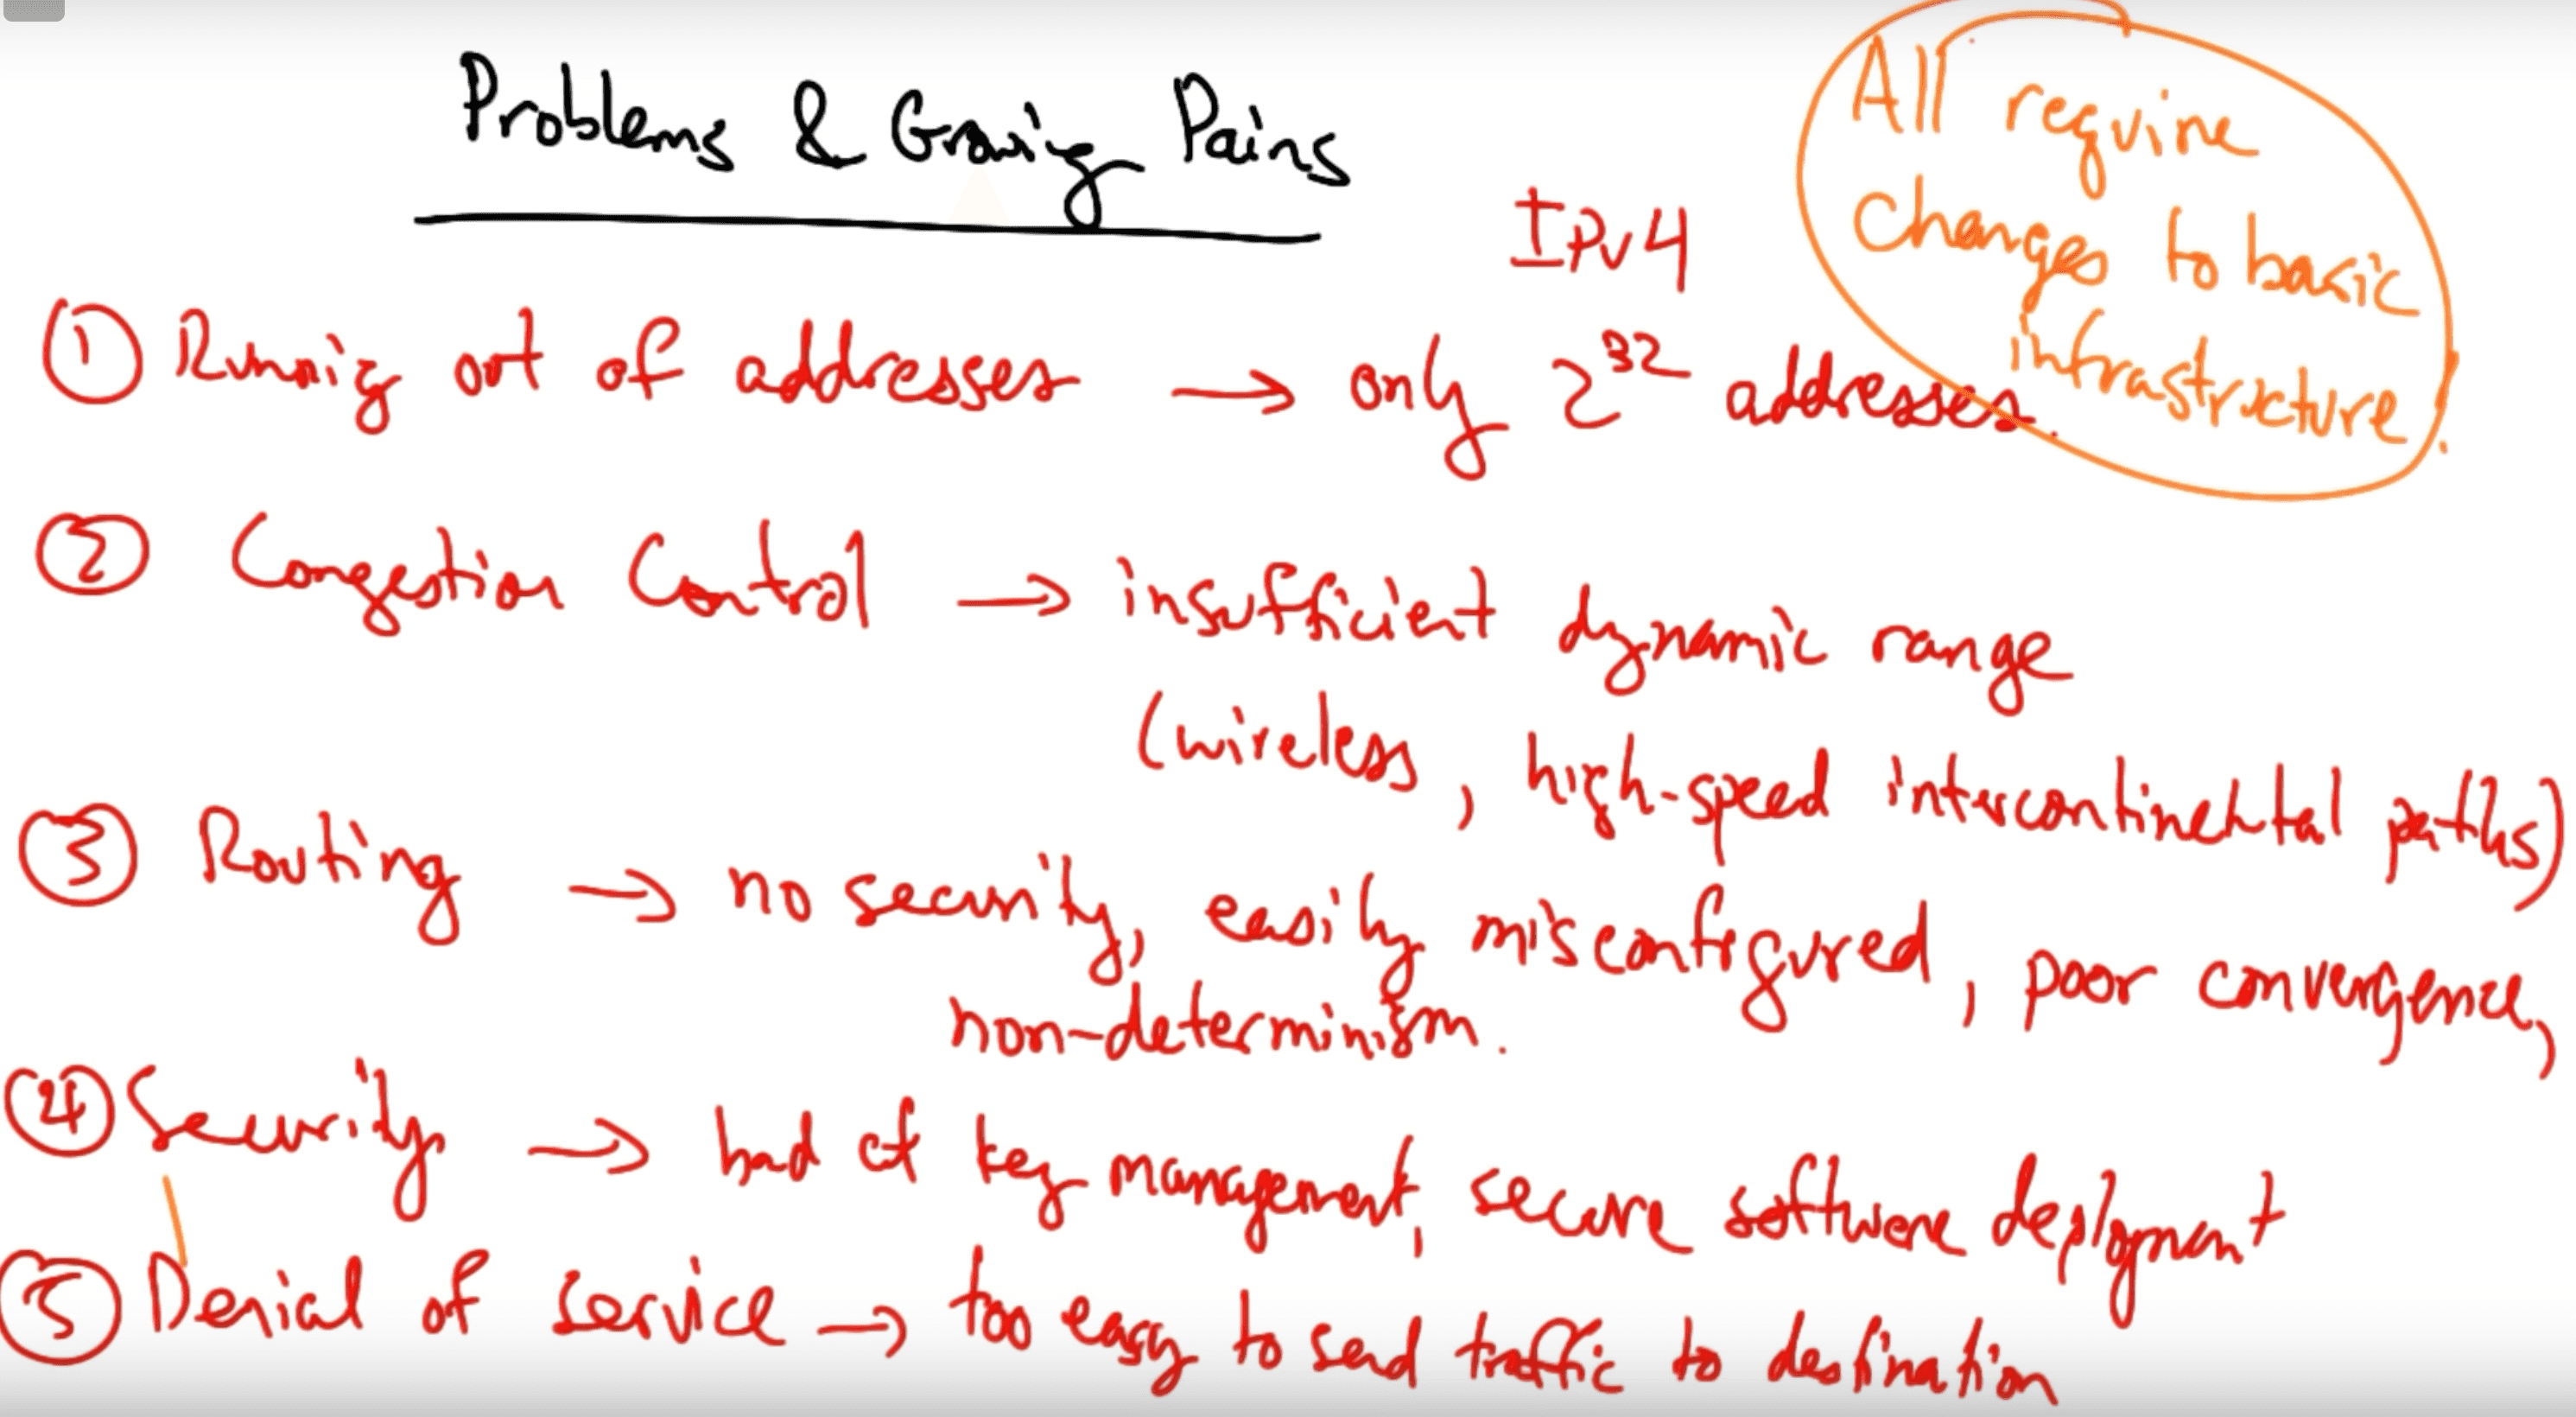 Problems & Growing Pains
All require
changes to basic
infrastructure.
IPv4
① Running out of addresses → only 2³² addresses.
② Congestion Control → insufficient dynamic range
(wireless, high-speed intercontinental paths)
③ Routing → no security, easily misconfigured, poor convergence,
non-determinism.
④ Security → bad at key management, secure software deployment
⑤ Denial of service → too easy to send traffic to destination